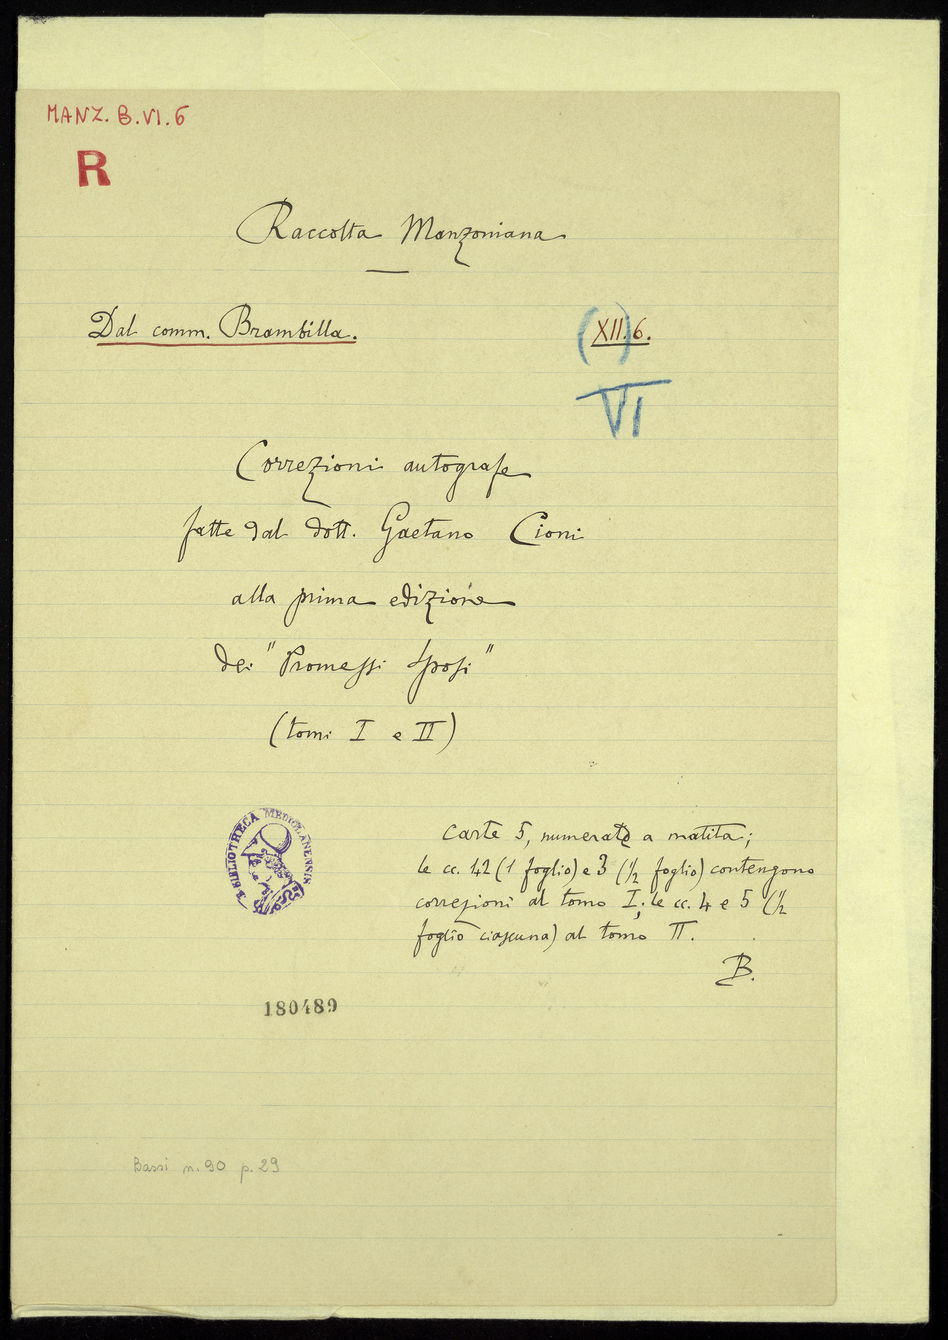 MANZ. B. VI. 6
R
Raccolta Manzoniana
Dal comm. Brambilla.
(XII). 6.
VI
Correzioni autografe
fatte dal dott. Gaetano Cioni
alla prima edizione
dei "Promessi Sposi"
(tomi I e II)
BIBLIOTHECA MEDIOLANENSIS
Carte 5, numerate a matita;
le cc. 1-2 (1 foglio) e 3 (1/2 foglio) contengono
correzioni al tomo I; le cc. 4 e 5 (1/2
foglio ciascuna) al tomo II.
B.
180489
Bassi n. 90 p. 29